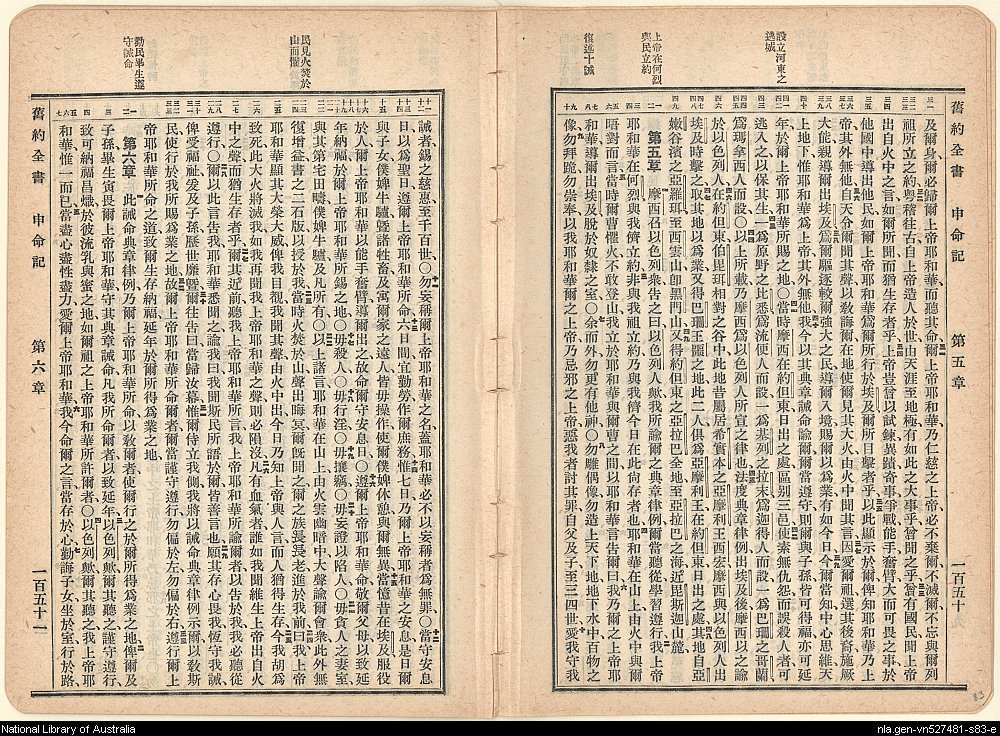 設立河東之
逃城
上帝在何烈
與民立約
復述十誡
舊約全書 申命記 第五章
及爾身爾必歸爾上帝耶和華而聽其命爾上帝耶和華乃仁慈之上帝必不棄爾不滅爾不忘與爾列
祖所立之約粵稽往古自上帝造人於世由天涯至地極有如此之大事乎曾聞之乎曾有國民聞上帝
出自火中之言如爾所聞而猶生存者乎上帝豈曾以試鍊異蹟奇事爭戰能手奮臂大而可畏之事於
他國中導出他民如爾上帝耶和華爲爾所行於埃及爾所目擊者乎以此顯示於爾俾知耶和華乃上
帝其外無他自天俾爾聞其聲以敎誨爾在地使爾見其大火由火中聞其言因愛爾祖選其後裔施厥
大能親導爾出埃及爲爾驅逐較爾強大之民導爾入境賜爾以爲業有如今日今爾當知中心思維天
上地下惟耶和華爲上帝其外無他我今以其典章誡命諭爾爾當遵守則爾與子孫皆可得福亦可延
年於爾上帝耶和華所賜之地〇當時摩西在約但東日出之處區別三邑使素無仇怨而誤殺人者可
逃入之以保其生一爲原野之比悉爲流便人而設一爲基列之拉末爲迦得人而設一爲巴珊之哥蘭
爲瑪拿西人而設〇以上所載乃摩西爲以色列人所宣之律也法度典章律例出埃及後摩西以之諭
於以色列人在約但東伯毘珥相對之谷中此地昔屬居希實本之亞摩利王西宏摩西與以色列人出
埃及時擊之取其地以爲業又得巴珊王噩之地此地二人俱爲亞摩利王在約但東日出之處其地自亞
嫩谷濱之亞羅珥至西雲山卽黑門山又得約但東之亞拉巴全地至亞拉巴之海近毘斯迦山麓
第五章 摩西召以色列衆告之曰以色列人歟我所諭爾之典章律例爾當聽從學習遵行我上帝
耶和華在何烈與我立約斯約非與我祖立約乃與我儕今日在此尙存者也耶和華在山上由火中與爾
晤對而言當時爾曹懼火不敢登山我立於耶和華與爾曹之間以耶和華言告爾曰我乃爾之上帝耶
和華導爾出埃及脫於奴隸之室〇余而外勿更有他神〇勿雕偶像勿造上天下地地下水中百物之
像勿拜跪勿崇奉以我耶和華爾之上帝乃忌邪之上帝惡我者討其罪自父及子至三四世愛我守我
民見火焚於
山而懼
勸民畢生遵
守誡命
誡者錫之慈惠至千百世〇勿妄稱爾上帝耶和華之名蓋耶和華必不以妄稱者爲無罪〇當守安息
日以爲聖日遵爾上帝耶和華所命六日間宜勤勞作爾庶務惟七日乃爾上帝耶和華之安息是日爾
與子女僕婢牛驢曁諸牲畜及寓爾家之遠人皆毋操作使爾僕婢休憩與爾無異當憶昔在埃及服役
於人爾上帝耶和華以能手奮臂導爾出之故命爾守安息日〇遵爾上帝耶和華命敬爾父母以致延
年納福於爾上帝耶和華所錫之地〇毋殺人〇毋行淫〇毋攘竊〇毋妄證以陷人〇毋貪人之妻室
與其第宅田疇僕婢牛驢及凡所有〇以上諸言耶和華在山上由火雲幽暗中大聲諭爾會衆此外無
復增益書之二石版以授於我當時火焚於山聲出晦冥爾旣聞之爾之族長長老進於我前曰我上帝
耶和華顯其大榮大威俾我目覩我聞其聲由火中出今日乃知上帝與人言而人猶得生存今我胡爲
致死此大火將滅我如我再聞我上帝耶和華之聲則必隕沒凡有血氣者誰如我聞維生上帝出自火
中之聲而猶生存者乎爾其近前聽我上帝耶和華所言我上帝耶和華所諭爾者以告於我我必聽從
遵行〇爾以此言告我耶和華悉聞之諭我曰我聞斯民所語於爾皆善言也願其存心畏我恆守我誡
俾受福祉爰及子孫歷世靡曁爾往告曰當歸汝幕惟爾侍立我側我將以誡命典章律例示爾以敎斯
民使行於我所賜爲業之地故爾上帝耶和華所命爾者爾當謹守遵行勿偏於左勿偏於右遵行爾上
帝耶和華所命之道致爾生存納福延年於爾所得爲業之地
第六章 此誡命典章律例乃爾上帝耶和華所命以敎爾者使爾行之於爾所得爲業之地俾爾及
子孫畢生寅畏爾上帝耶和華守其典章誡命凡我所諭爾者以致延年以色列歟爾其聽之謹守遵行
致可納福昌熾於彼流乳與蜜之地如爾祖之上帝耶和華所許爾者〇以色列歟爾其聽之我上帝耶
和華惟一而已當盡心盡性盡力愛爾上帝耶和華我今命爾之言當存於心勤誨子女坐於室行於路
舊約全書 申命記 第六章 一百五十二
83
National Library of Australia
nla.gen-vn527481-s83-e